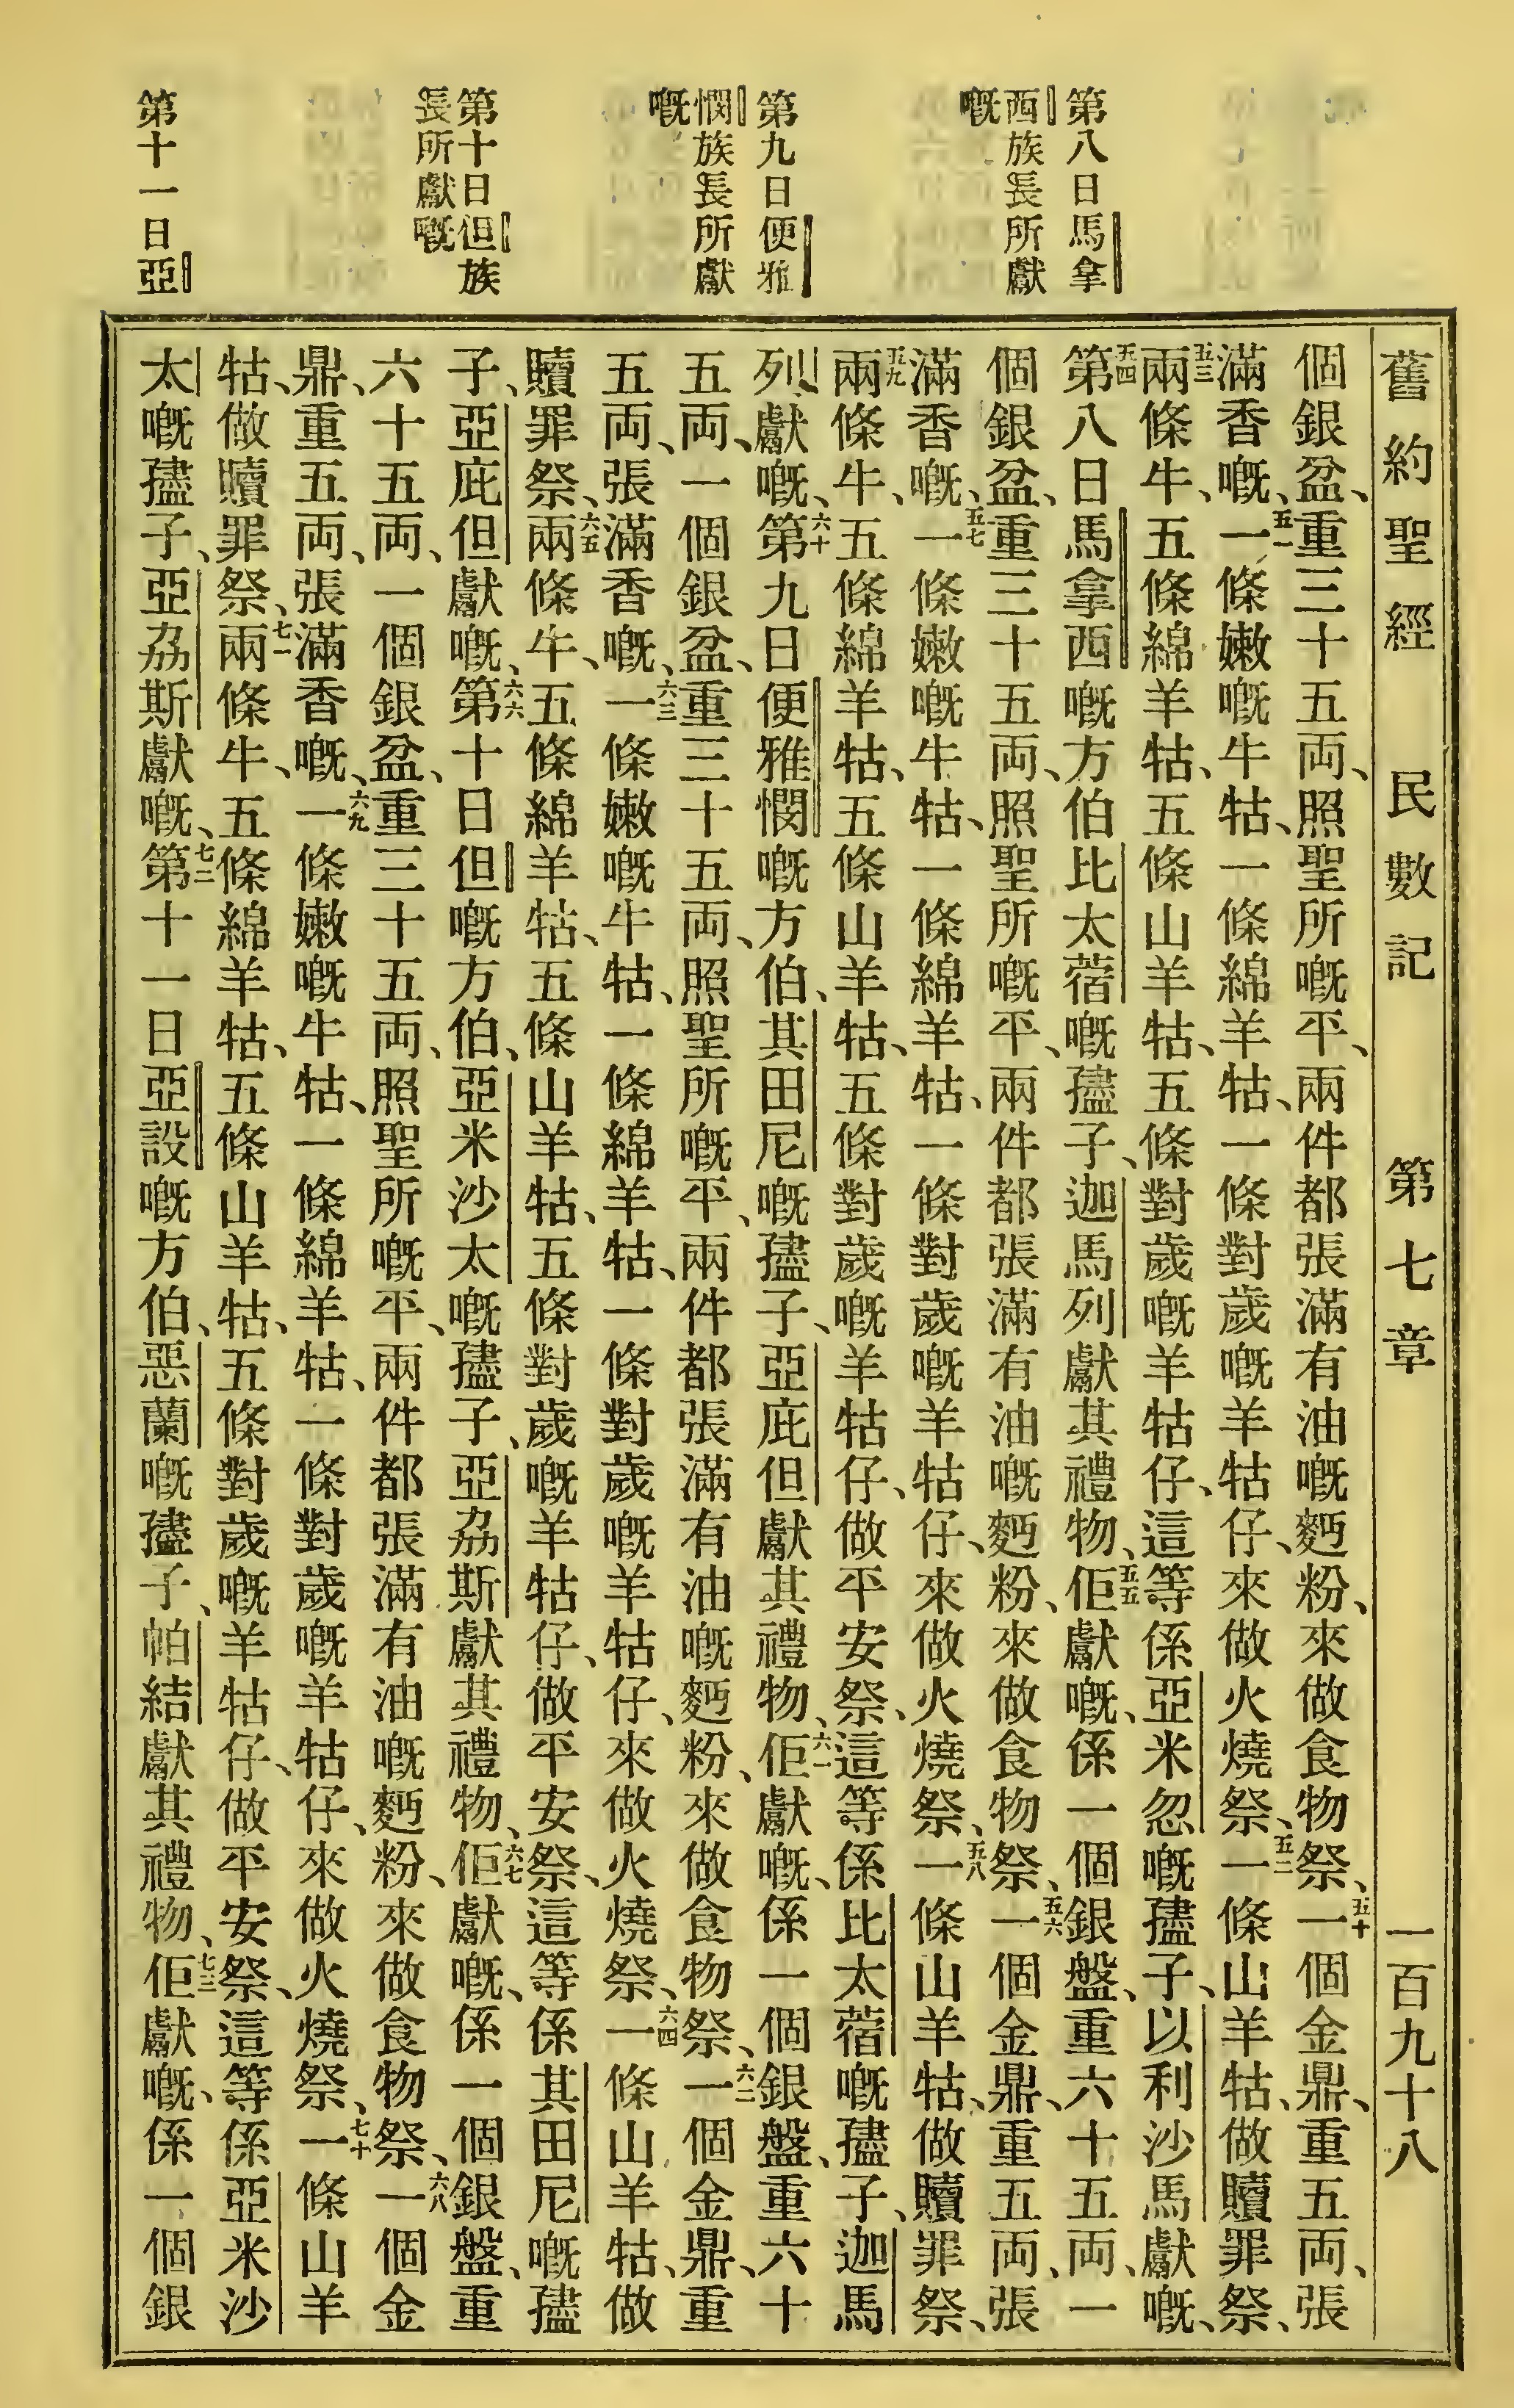 第八日馬拿
西族長所獻
嘅
第九日便雅
憫族長所獻
嘅
第十日但族
長所獻嘅
第十一日亞
舊約聖經 民數記 第七章 一百九十八
個銀盆、重三十五両、照聖所嘅平、兩件都張滿有油嘅麪粉、來做食物祭、五十一個金鼎、重五両、張
滿香嘅、五一一條嫩嘅牛牯、一條綿羊牯、一條對歲嘅羊牯仔、來做火燒祭、五二一條山羊牯、做贖罪祭、
五三兩條牛、五條綿羊牯、五條山羊牯、五條對歲嘅羊牯仔、這等係亞米忽嘅孻子、以利沙馬獻嘅、
五四第八日馬拿西嘅方伯比太蓿嘅孻子、迦馬列獻其禮物、五五佢獻嘅、係一個銀盤、重六十五両、一
個銀盆、重三十五両、照聖所嘅平、兩件都張滿有油嘅麪粉、來做食物祭、五六一個金鼎、重五両、張
滿香嘅、五七一條嫩嘅牛牯、一條綿羊牯、一條對歲嘅羊牯仔、來做火燒祭、五八一條山羊牯、做贖罪祭、
五九兩條牛、五條綿羊牯、五條山羊牯、五條對歲嘅羊牯仔、做平安祭、這等係比太蓿嘅孻子、迦馬
列獻嘅、六十第九日便雅憫嘅方伯、其田尼嘅孻子、亞庇但獻其禮物、六一佢獻嘅、係一個銀盤、重六十
五両、一個銀盆、重三十五両、照聖所嘅平、兩件都張滿有油嘅麪粉、來做食物祭、六二一個金鼎、重
五両、張滿香嘅、六三一條嫩嘅牛牯、一條綿羊牯、一條對歲嘅羊牯仔、來做火燒祭、六四一條山羊牯、做
贖罪祭、六五兩條牛、五條綿羊牯、五條山羊牯、五條對歲嘅羊牯仔、做平安祭、這等係其田尼嘅孻
子、亞庇但獻嘅、六六第十日但嘅方伯、亞米沙太嘅孻子、亞刕斯獻其禮物、六七佢獻嘅、係一個銀盤、重
六十五両、一個銀盆、重三十五両、照聖所嘅平、兩件都張滿有油嘅麪粉、來做食物祭、六八一個金
鼎、重五両、張滿香嘅、六九一條嫩嘅牛牯、一條綿羊牯、一條對歲嘅羊牯仔、來做火燒祭、七十一條山羊
牯、做贖罪祭、七一兩條牛、五條綿羊牯、五條山羊牯、五條對歲嘅羊牯仔、做平安祭、這等係亞米沙
太嘅孻子、亞刕斯獻嘅、七二第十一日亞設嘅方伯、惡蘭嘅孻子、帕結獻其禮物、七三佢獻嘅、係一個銀